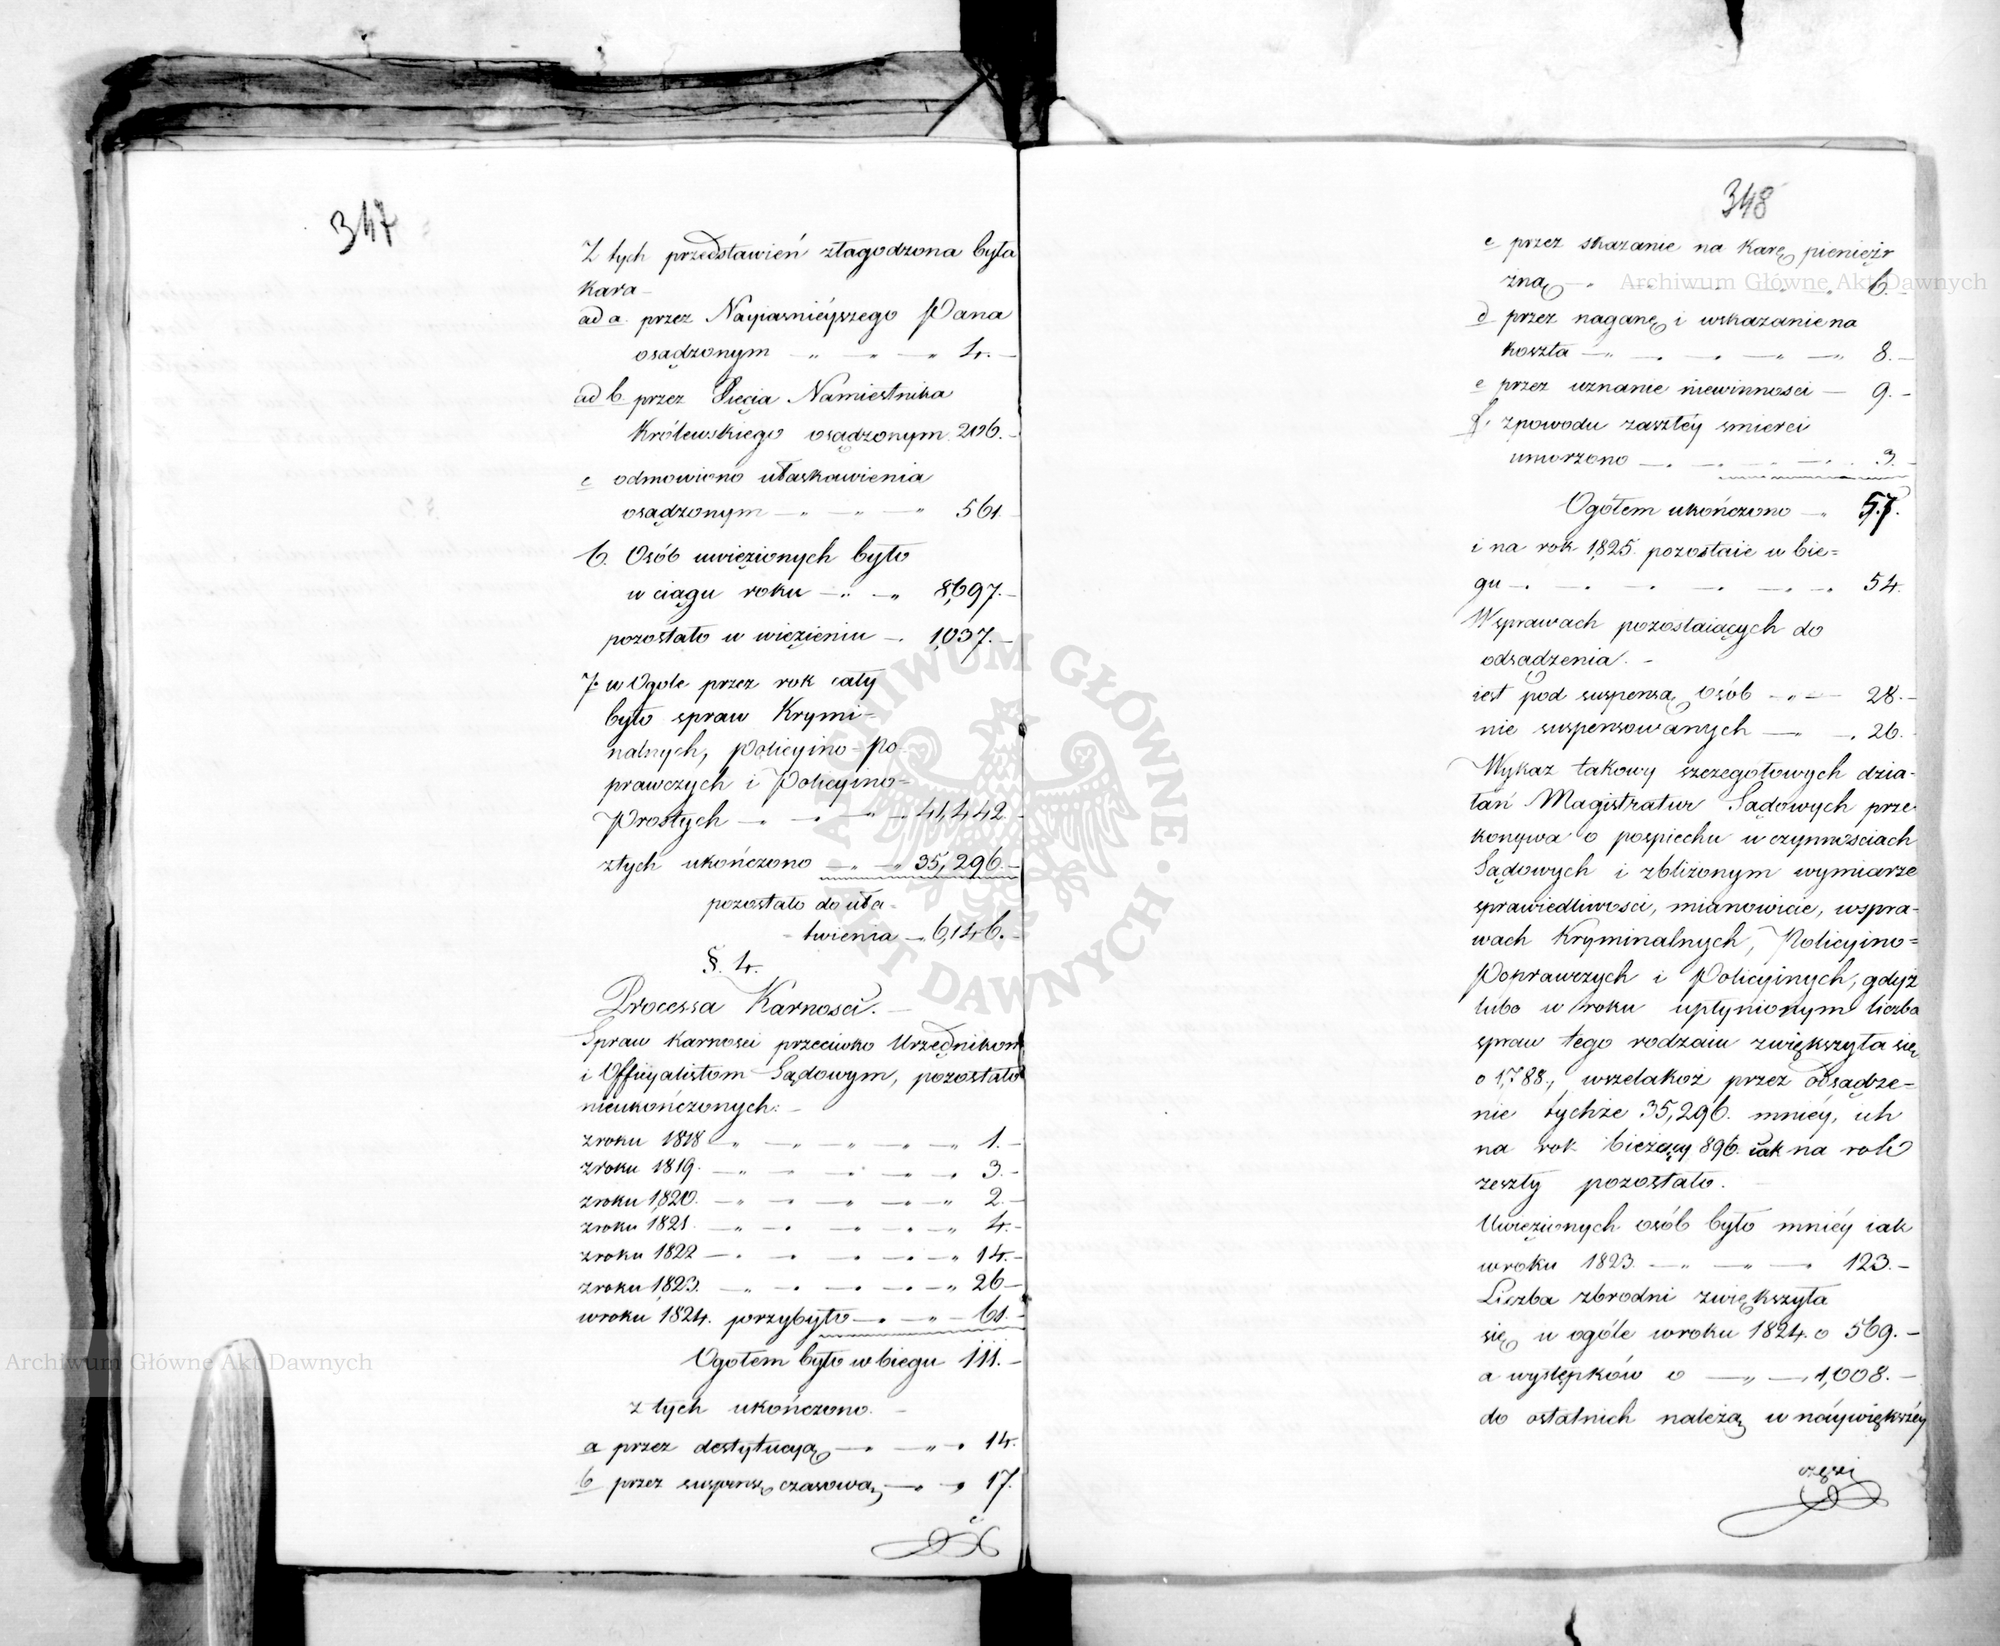 347
Z tych przedstawień złagodzona była
kara –
ad a. przez Nayiaśnieyszego Pana
osądzonym – „ – „ – „ 4. –
ad b. przez Xięcia Namiestnika
Królewskiego osądzonym 206. –
c odmowiono ułaskawienia
osądzonym – „ – „ – „ 561.
6. Osób uwięzionych było
w ciągu roku – „ – „ 8,697. –
pozostało w więzieniu – „ 1,037. –
7. w Ogole przez rok cały
było spraw Krymi-
nalnych, Policyino-Po-
prawczych i Policyino=
Prostych – „ – „ – „ – 41,442. –
z tych ukończono – „ – „ 35,296. –
pozostało do uła-
twienia – 6,146. –
§. 4.
Processa Karności. –
Spraw Karności przeciwko Urzędnikom
i Officyalistom Sądowym, pozostało
nieukończonych: –
z roku 1818 – „ – „ – „ – „ – „ 1. –
z roku 1819. – „ – „ – „ – „ – „ 3. –
z roku 1820. – „ – „ – „ – „ – „ 2. –
z roku 1821. – „ – „ – „ – „ – „ 4. –
z roku 1822 – „ – „ – „ – „ – „ 14. –
z roku 1823. – „ – „ – „ – „ – „ 26 –
w roku 1824. przybyło – „ – „ – 61. –
Ogołem było w biegu 111. –
z tych ukończono. –
a przez destytucyą – „ – „ – „ 14.
b przez suspensę czasową – „ – „ 17.
348
c przez skazanie na karę pienięż
żną – „ – „ – „ – „ 6. –
d przez naganę i wskazanie na
koszta – „ – „ – „ – „ – „ 8. –
e przez uznanie niewinności – 9. –
f. z powodu zaszłéy śmierci
umorzono – „ – „ – „ – „ 3. –
Ogółem ukończono – „ 57.
i na rok 1825. pozostaie w bie=
gu – „ – „ – „ – „ – „ – „ 54.
W sprawach pozostaiących do
odsądzenia. –
iest pod suspensą osób – „ – 28. –
nie suspensowanych – „ – „ 26.
Wykaz takowy szczegółowych dzia-
łań Magistratur Sądowych prze-
konywa o pospiechu w czynnościach
Sądowych i zbliżonym wymiarze
sprawiedliwości, mianowicie, w spra-
wach Kryminalnych, Policyino=
Poprawczych i Policyinych, gdyż
lubo w roku upłynionym liczba
spraw tego rodzaiu zwiększyła się
o 1,788., wszelakoż przez odsądze-
nie tychże 35,296. mniéy, ich
na rok bieżący 896. iak na rok
zeszły pozostało. –
Uwięzionych osób było mniéy iak
w roku 1823. – „ – „ – „ 123. –
Liczba zbrodni zwiększyła
się w ogóle w roku 1824. o 569. –
a występków o – „ – 1,008. –
do ostatnich należą w naywiększéy
części
Archiwum Główne Akt Dawnych
Archiwum Główne Akt Dawnych
ARCHIWUM GŁÓWNE AKT DAWNYCH